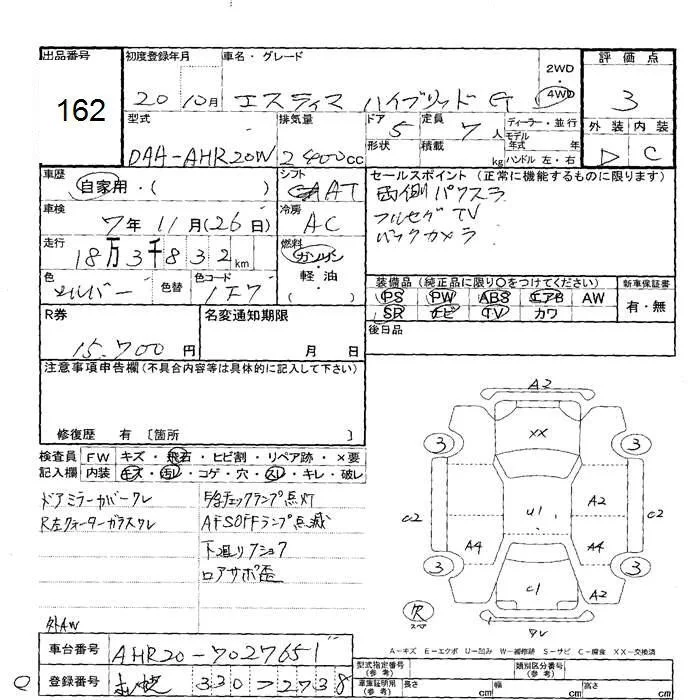 出品番号 初度登録年月 車名・グレード 2WD・4WD 評価点
162 20 10月 エスティマ ハイブリッド G 3
型式 排気量 ドア 定員 ディーラー・並行 外装 内装
DAA-AHR20W 2400cc 5 7人 モデル年式 年 C
形状 積載 kg ハンドル 左・右
車歴 自家用・( ) シフト AT セールスポイント (正常に機能するものに限ります)
両側パワスラ
車検 7年11月(26日) 冷房 AC フルセグTV
バックカメラ
走行 18万3千832km 燃料 ガソリン・軽油 ( )
色 シルバー 色替 色コード 1F7
装備品 (純正品に限り○をつけてください) 新車保証書
PS PW ABS エアB AW 有・無
SR ナビ TV カワ
R券 15.700円 名変通知期限 月 日 後日品
注意事項申告欄 (不具合内容等は具体的に記入して下さい)
修復歴 有 〔箇所 〕
検査員 FW キズ・飛石・ヒビ割・リペア跡・×要
記入欄 内装 キズ・汚レ・コゲ・穴・スレ・キレ・破レ
ドアミラーカバーワレ
R左クォーターガラスワレ
チェックランプ点灯
AFSOFFランプ点滅
下廻りクショク
ロアサポ歪
外AW
A2
XX
3 3
A2
C2 U1 C2
A4 A4
3 3
C1 A2
欠 スペア
ワレ
A-キズ E-エクボ U-凹み W-補修跡 S-サビ C-腐食 XX-交換済
車台番号 AHR20-7027651
登録番号 330 2738
型式指定番号(参考) 類別区分番号(参考)
車庫証明用(参考) 長さ cm 幅 cm 高さ cm